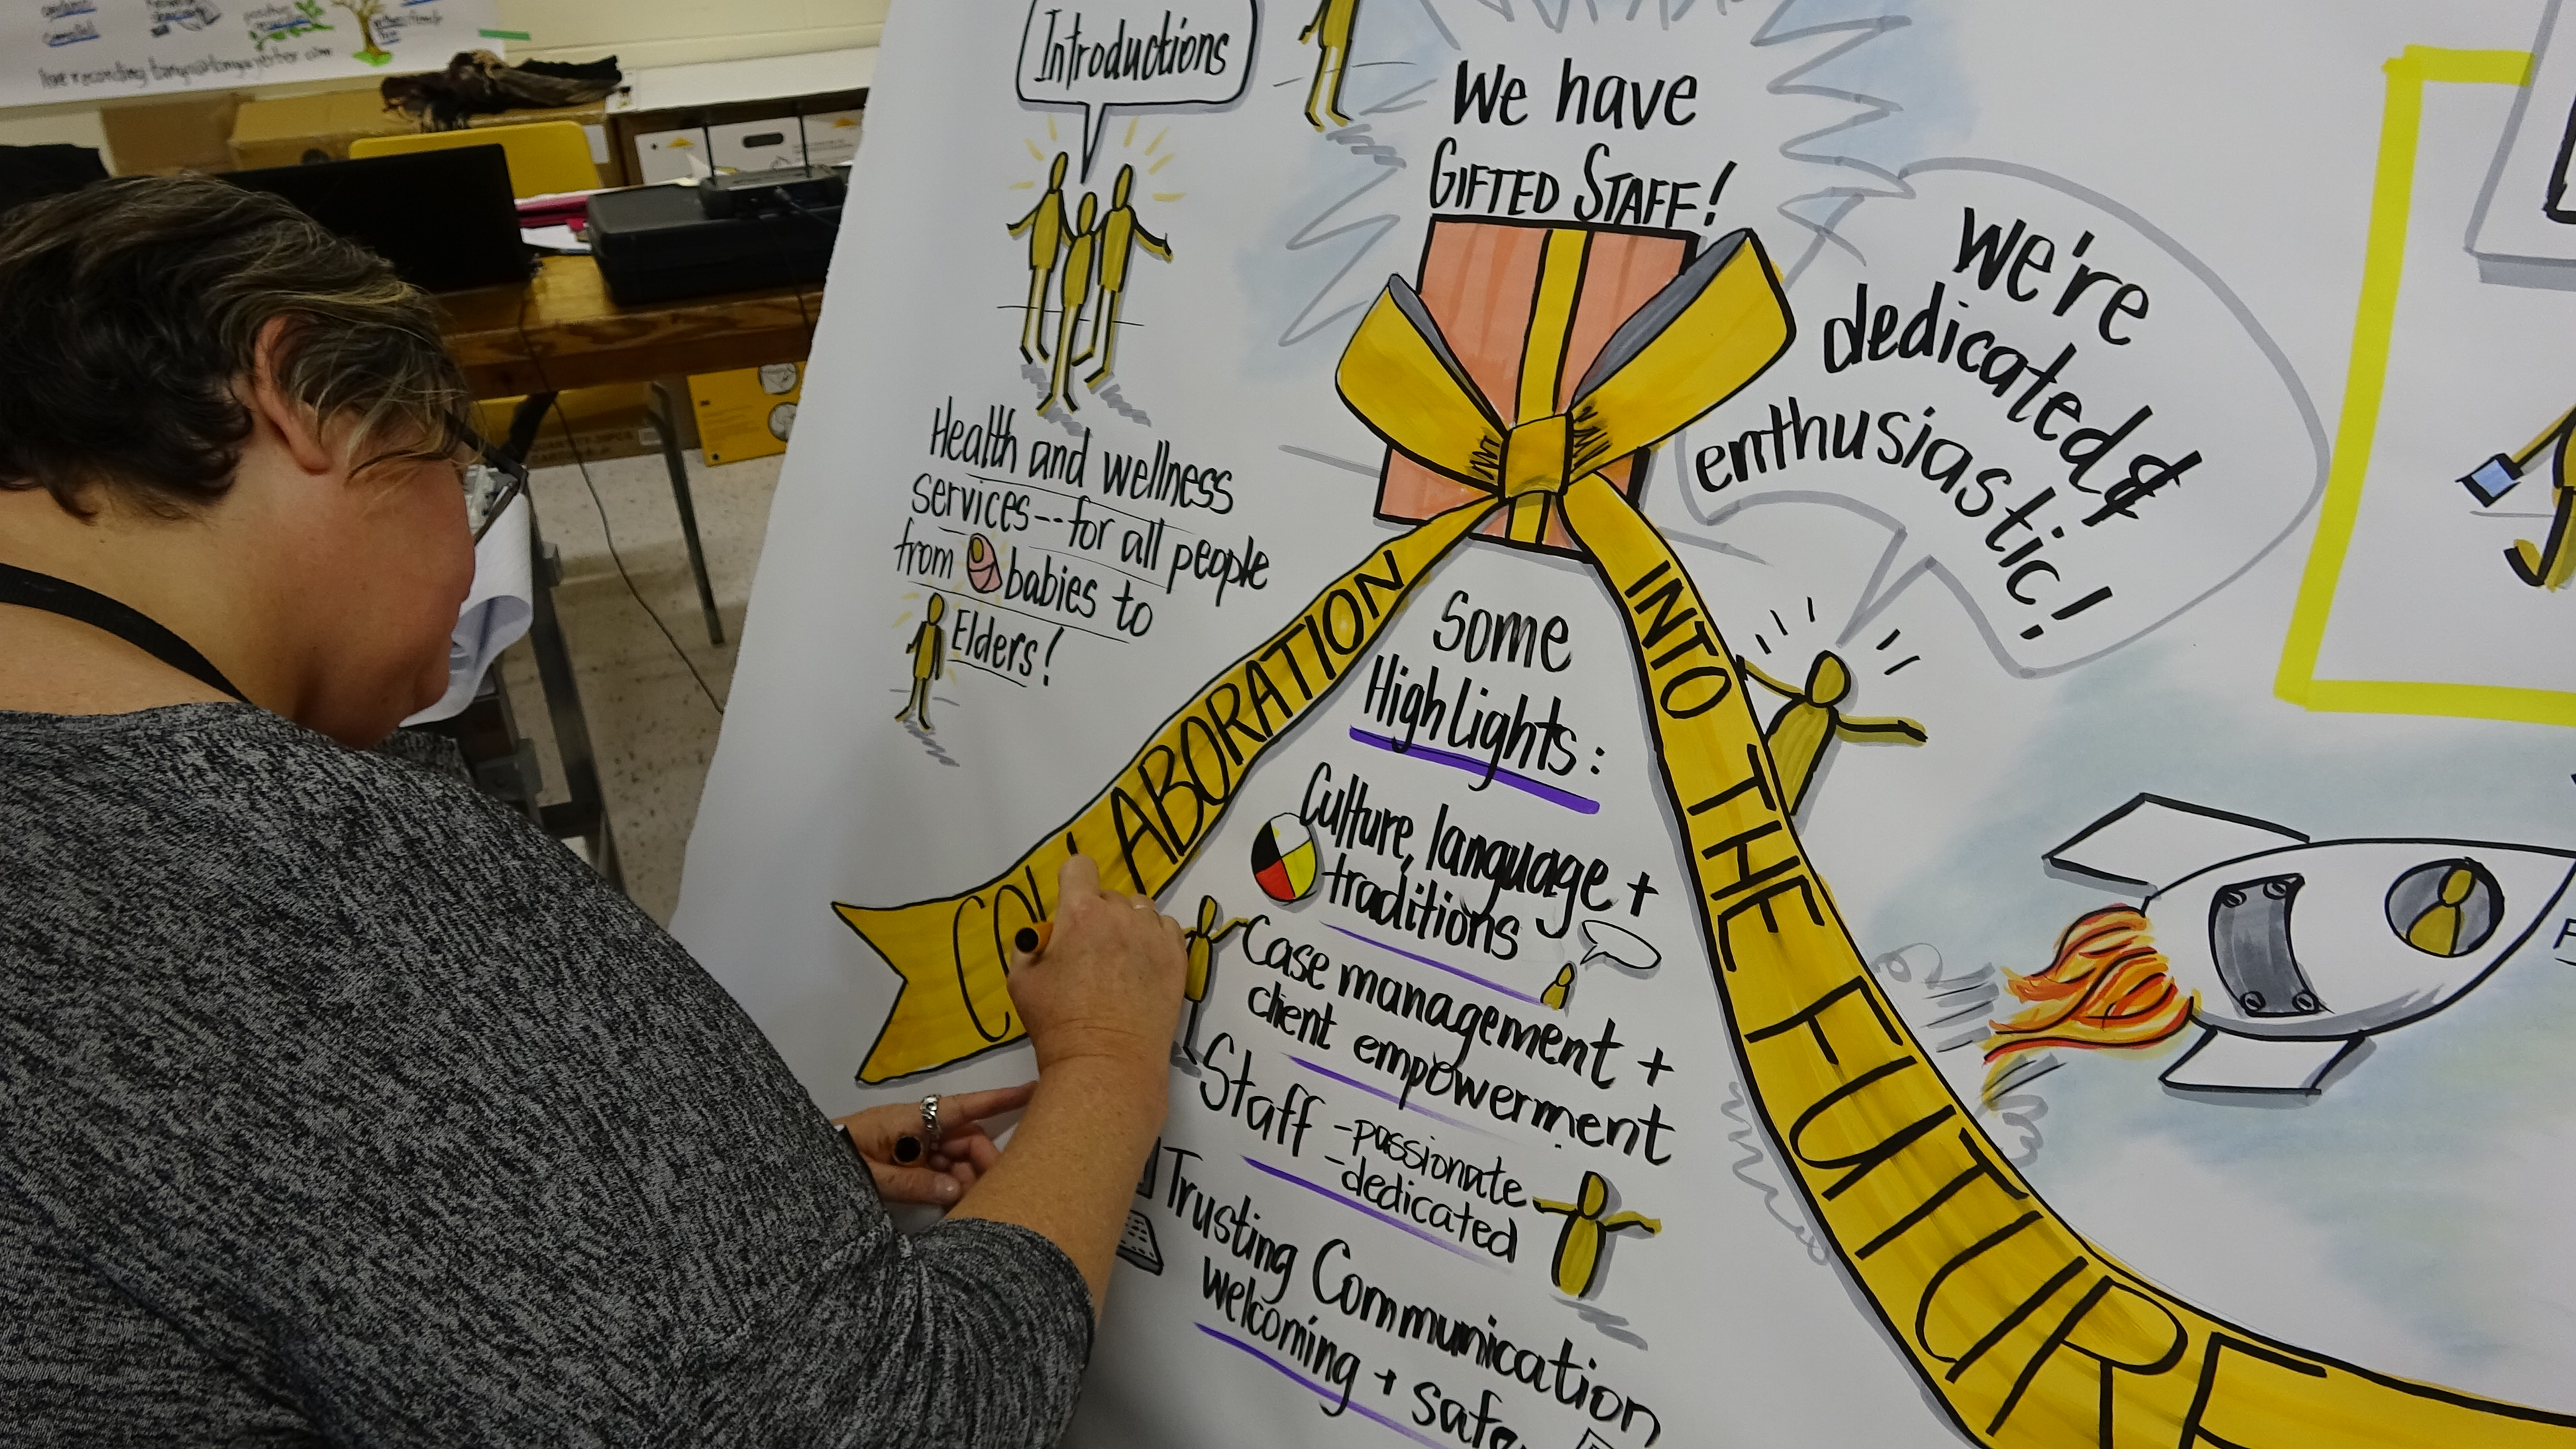 Introductions
We have
GIFTED STAFF!
We're
dedicated &
enthusiastic!
Health and wellness
services--for all people
from babies to
Elders!
COLLABORATION
INTO THE FUTURE
Some
Highlights:
Culture, language +
traditions
Case management +
client empowerment
Staff -passionate
-dedicated
Trusting Communication
welcoming + safe